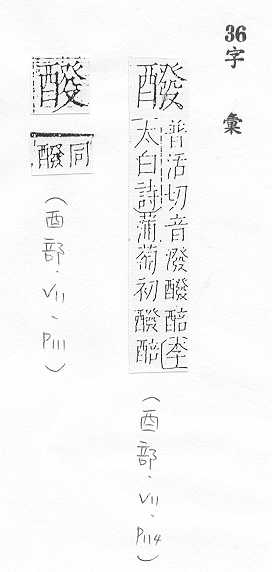 36字彙
醱
普活切音潑醱醅(李
太白詩)蒲萄初醱醅
(酉部.VII.P114)
醗
同
醱
(酉部.VII.P111)